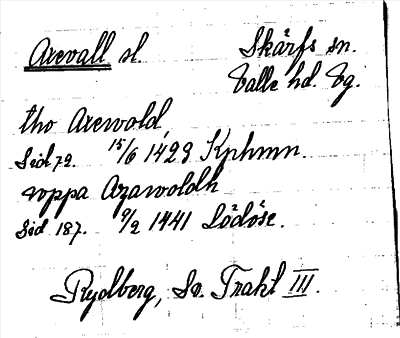 Axevall sl. Skärfs sn.
Valle hd. Vg.
tho Axewold,
Sid 72. 15/6 1429 Kphmn.
vppa Axawoldh
Sid 187. 9/2 1441 Lödöse.
Rydberg, Sv. Trakt III.